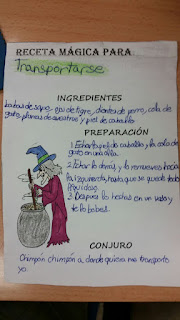 RECETA MÁGICA PARA:
Transportarse
INGREDIENTES
babas de sapo, ojos de tigre, dientes de perro, cola de
gato, plumas de avestruz y piel de caballo
PREPARACIÓN
1. Echar la piel de caballo y la cola de
gato en una olla
2. Echar lo demás, y lo removemos hacia
la izquierda, hasta que se quede todo
líquido.
3. Después lo hechas en un vaso y
te lo bebes.
CONJURO
Chimpón chimpón a donde quiera me transporto
yo.